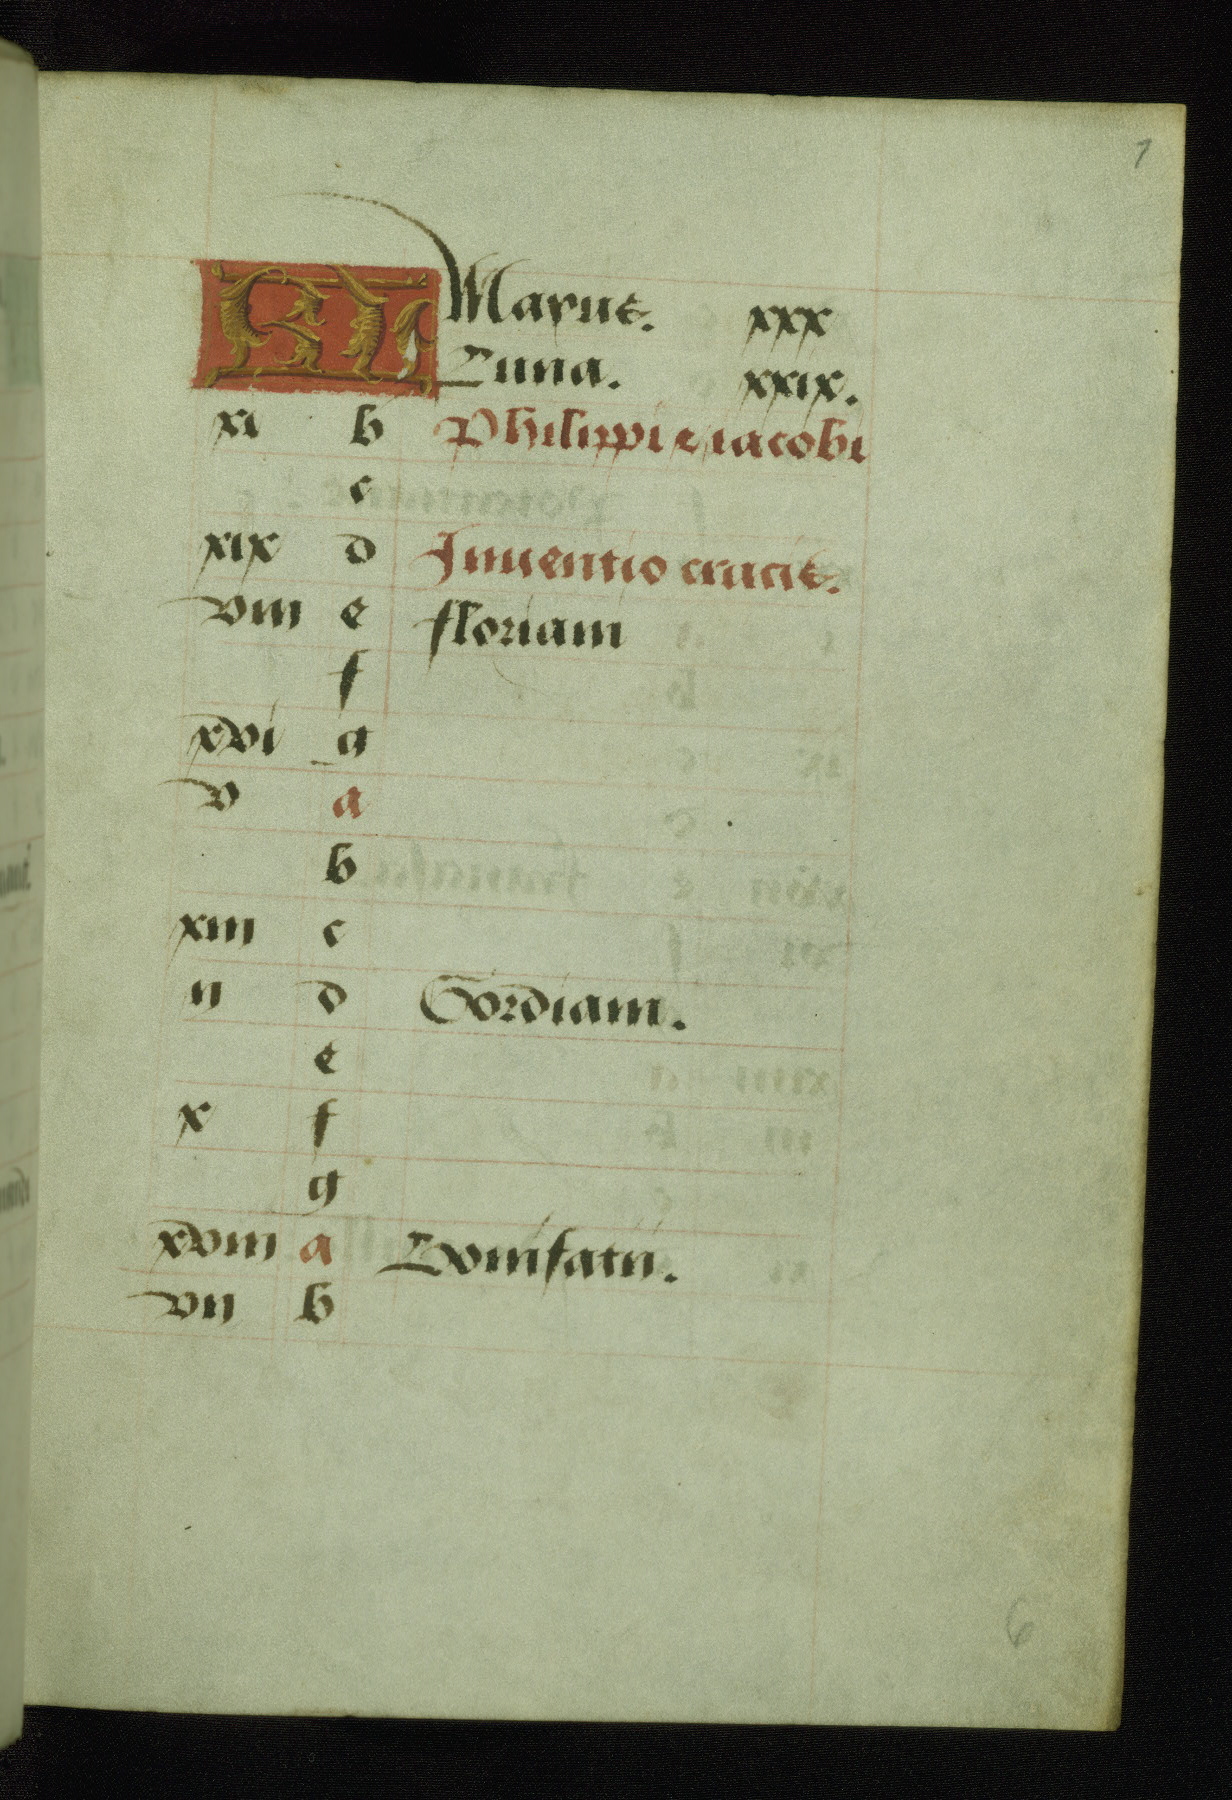 7
KL Mayus. xxx
Luna. xxix.
xi b Philippi et iacobi
c
xix d Inuentio crucis.
viii e floriani
f
xvi g
v a
b
xiii c
ii d Gordiani.
e
x f
g
xviii a Bonifatii.
vii b
6